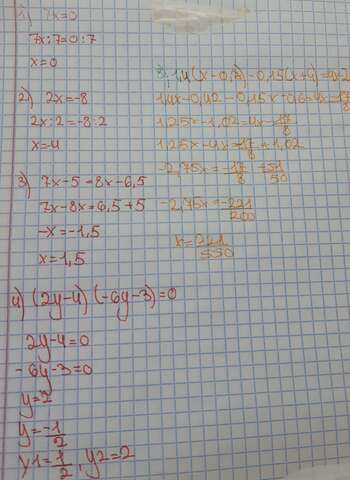 1) 7x=0
7x:7=0:7
x=0
2) 2x=-8
2x:2=-8:2
x=-4
3) 7x-5=8x-6,5
7x-8x=6,5+5
-x=-1,5
x=1,5
4) (2y-4)(-6y-3)=0
2y-4=0
-6y-3=0
y=2
y=-1/2
y1=1/2, y2=2
1,4x-0,42-0,15x-0,6=4x-17/8
1,25x-1,02=4x-17/8
1,25x-4x=-17/8+1,02
-2,75x=-17/8+51/50
-2,75x=-221/200
x=221/550